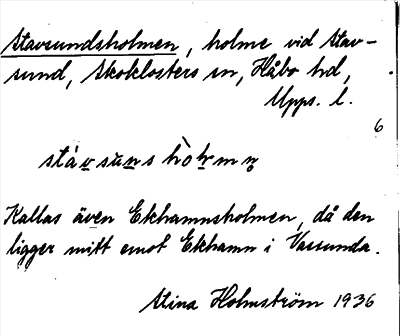 Stavsundsholmen, holme vid Stav-
sund, Skoklosters sn, Håbo hd,
Upps. l.
6
stávsùnshòlmn̥
Kallas även Ekhamnsholmen, då den
ligger mitt emot Ekhamn i Vassunda.
Stina Holmström 1936